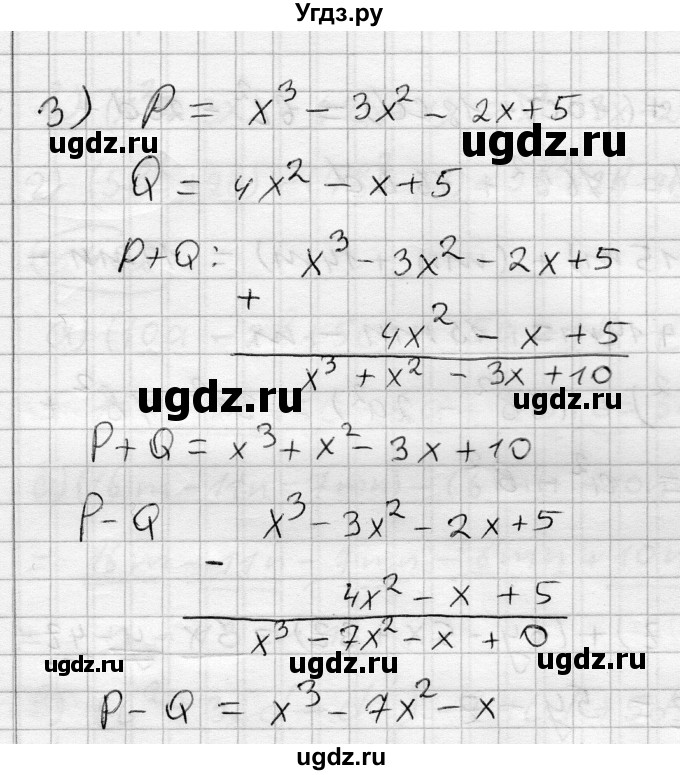 Угдз.ру
3) P = x³ - 3x² - 2x + 5
ugdz.ru ugdz.ru
Q = 4x² - x + 5
P+Q: x³ - 3x² - 2x + 5
+
4x² - x + 5
x³ + x² - 3x + 10
ugdz.ru ugdz.ru
P+Q = x³ + x² - 3x + 10
P-Q x³ - 3x² - 2x + 5
-
4x² - x + 5
x³ - 7x² - x + 0
ugdz.ru ugdz.ru
P - Q = x³ - 7x² - x
ugdz.ru